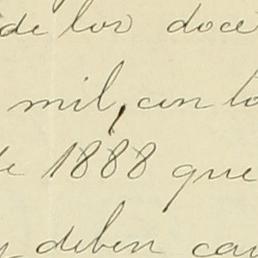 de los doce
mil, con lo
de 1888 que
y deben cau